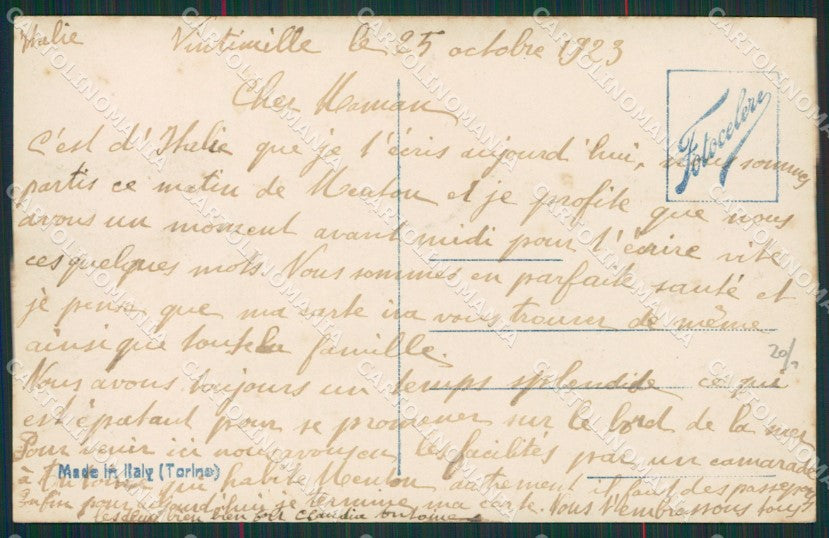 Italie Vintimille le 25 octobre 1923
Cher Maman
Fotocelere
C'est d'Italie que je t'écris aujourd'hui, nous sommes
partis ce matin de Menton et je profite que nous
avons un moment avant midi pour t'écrire vite
ces quelques mots. Nous sommes en parfaite santé et
je pense que ma carte ira vous trouver de même
ainsi que toute la famille.
20/
Nous avons toujours un temps splendide ce qui
est épatant pour se promener sur le bord de la mer
Pour venir ici nous avons eu les facilités par un camarade
Made in Italy (Torino)
à qui habite Menton autrement il faut des passeports
Enfin pour aujourd'hui je termine ma carte. Nous t'embrassons tous
les deux bien bien fort Claudia Antoine
CARTOLINOMANIA